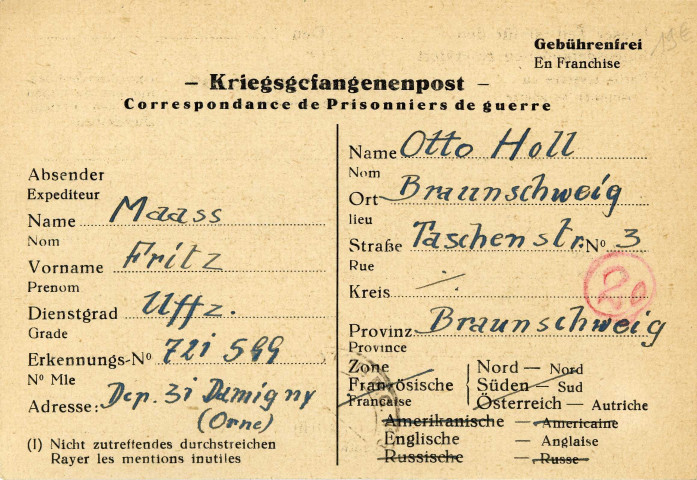 Gebührenfrei
En Franchise
– Kriegsgefangenenpost –
Correspondance de Prisonniers de guerre
Absender
Expediteur
Name Maass
Nom
Vorname Fritz
Prenom
Dienstgrad Uffz.
Grade
Erkennungs-Nº 721 599
Nº Mle
Adresse: Dep. 31 Damigny
(Orne)
(I) Nicht zutreffendes durchstreichen
Rayer les mentions inutiles
Name Otto Holl
Nom
Ort Braunschweig
lieu
Straße Taschenstr. Nº 3
Rue
Kreis ./.
Provinz Braunschweig
Province
Zone
Französische { Nord – Nord
Française { Süden – Sud
{ Österreich – Autriche
Amerikanische – Americaine
Englische – Anglaise
Russische – Russe
20